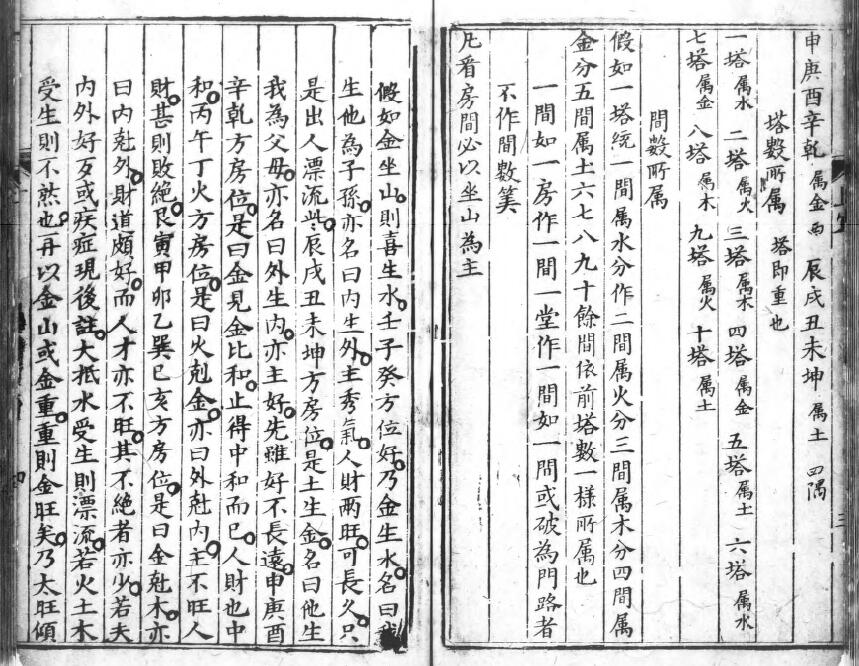 申庚酉辛乾 属金 西 辰戌丑未坤 属土 四隅
塔數所属 塔即重也
一塔属水 二塔属火 三塔属木 四塔属金 五塔属土 六塔属水
七塔属金 八塔属木 九塔属火 十塔属土
間數所属
假如一塔统一間属水分作二間属火分三間属木分四間属
金分五間属土六七八九十餘間依前塔數一樣所属也
一間如一房作一間一堂作一間如一間或破為門路者
不作間數筭
凡看房間必以坐山為主
假如金坐山則喜生水壬子癸方位好乃金生水名曰我
生他為子孫亦名曰内生外主秀氣人財兩旺可長久只
是出人漂流些辰戌丑未坤方房位是土生金名曰他生
我為父母亦名曰外生内亦主好先雖好不長遠申庚酉
辛乾方房位是曰金見金比和止得中和而已人財也中
和丙午丁火方房位是曰火剋金亦曰外尅内主不旺人
財甚則敗絶艮寅甲卯乙巽巳亥方房位是曰金尅木亦
曰内尅外財道頗好而人才亦不旺其不絶者亦少若夫
内外好歹或疾症現後註大抵水受生則漂流若火土木
受生則不然也再以金山或金重重則金旺矣乃太旺傾